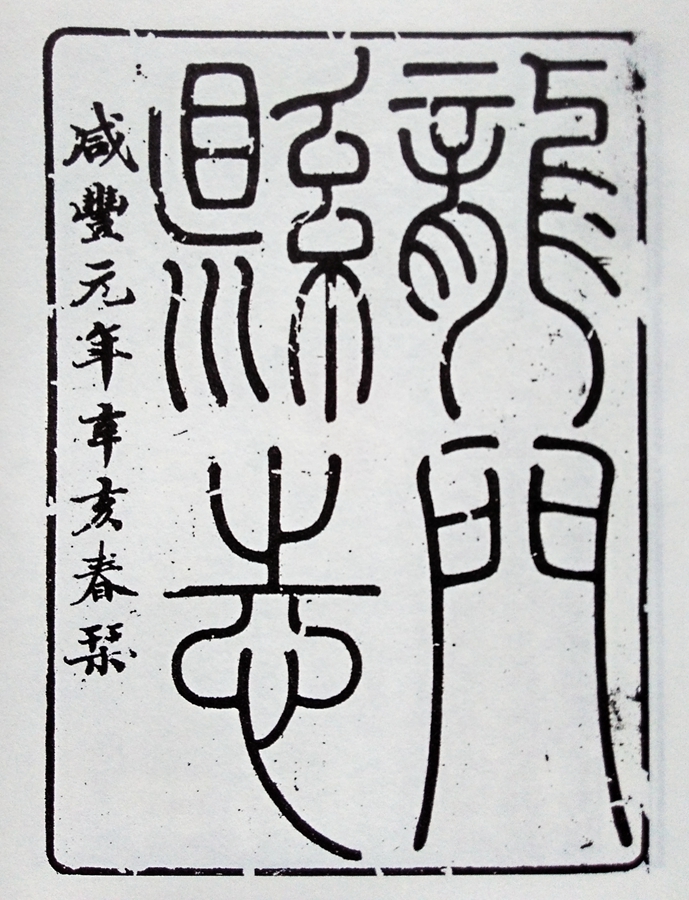 龍門
縣志
咸豐元年辛亥春栞